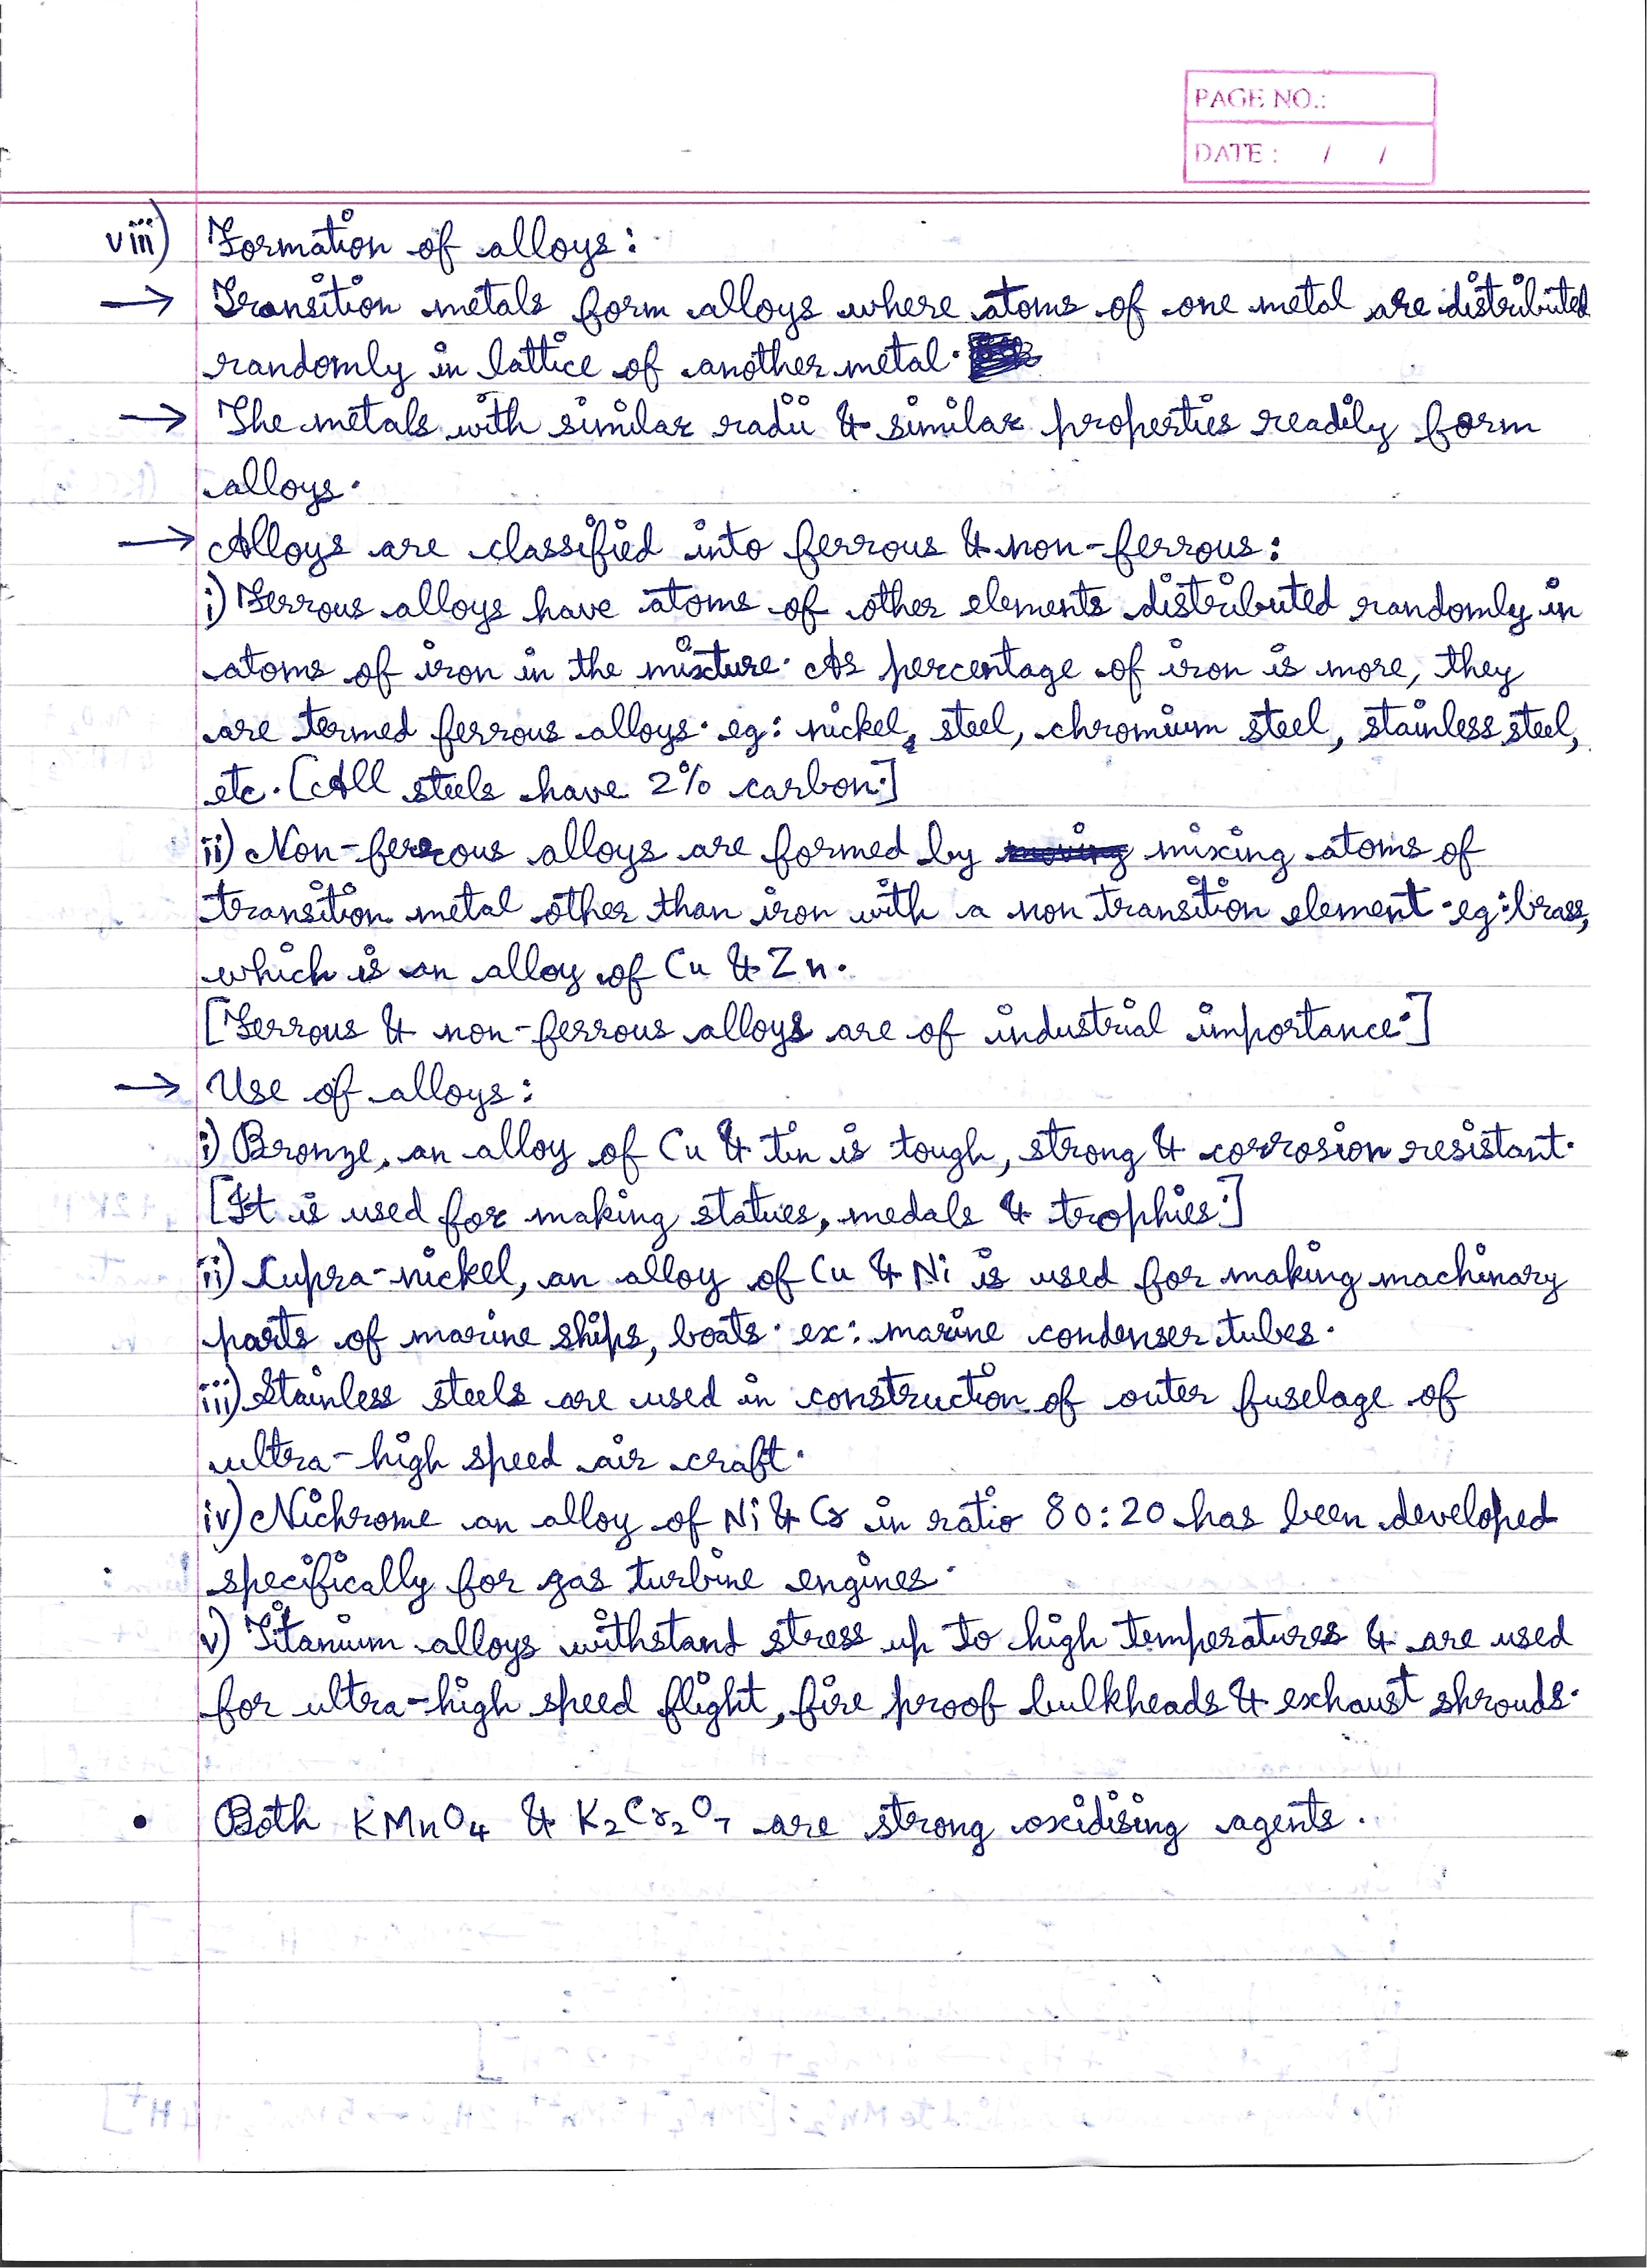 PAGE NO.:
DATE : / /
viii) Formation of alloys:
→ Transition metals form alloys where atoms of one metal are distributed
randomly in lattice of another metal.
→ The metals with similar radii & similar properties readily form
alloys.
→ Alloys are classified into ferrous & non-ferrous:
i) Ferrous alloys have atoms of other elements distributed randomly in
atoms of iron in the mixture. As percentage of iron is more, they
are termed ferrous alloys. eg: nickel, steel, chromium steel, stainless steel,
etc. [All steels have 2% carbon.]
ii) Non-ferrous alloys are formed by moving mixing atoms of
transition metal other than iron with a non transition element. eg: brass,
which is an alloy of Cu & Zn.
[Ferrous & non-ferrous alloys are of industrial importance.]
→ Use of alloys:
i) Bronze, an alloy of Cu & tin is tough, strong & corrosion resistant.
[It is used for making statues, medals & trophies.]
ii) Cupra-nickel, an alloy of Cu & Ni is used for making machinary
parts of marine ships, boats. ex: marine condenser tubes.
iii) Stainless steels are used in construction of outer fuselage of
ultra-high speed air craft.
iv) Nichrome an alloy of Ni & Cr in ratio 80:20 has been developed
specifically for gas turbine engines.
v) Titanium alloys withstand stress up to high temperatures & are used
for ultra-high speed flight, fire proof bulkheads & exhaust shrouds.
• Both KMnO₄ & K₂Cr₂O₇ are strong oxidising agents.